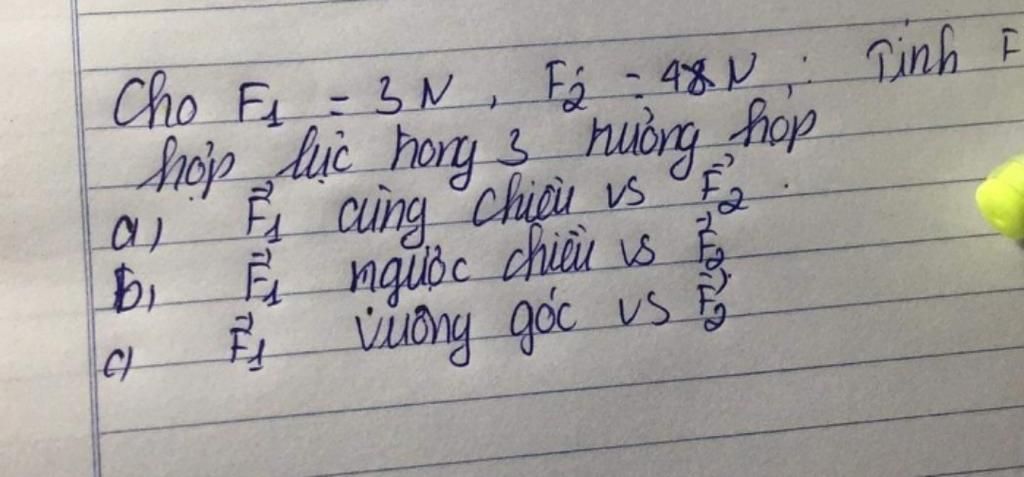 Cho F1 = 3 N, F2 = 48 N; Tính F
hợp lực trong 3 trường hợp
a, F⃗1 cùng chiều vs F⃗2.
b, F⃗1 ngược chiều vs F⃗2
c, F⃗1 vuông góc vs F⃗2